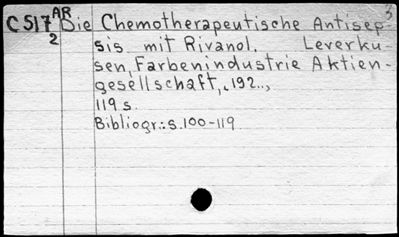 AR 3
C517 Die Chemotherapeutische Antisep
2 sis mit Rivanol. Leverku
sen, Farbenindustrie Aktien-
gesellschaft, 192..,
119 s.
Bibliogr.: s. 100-119